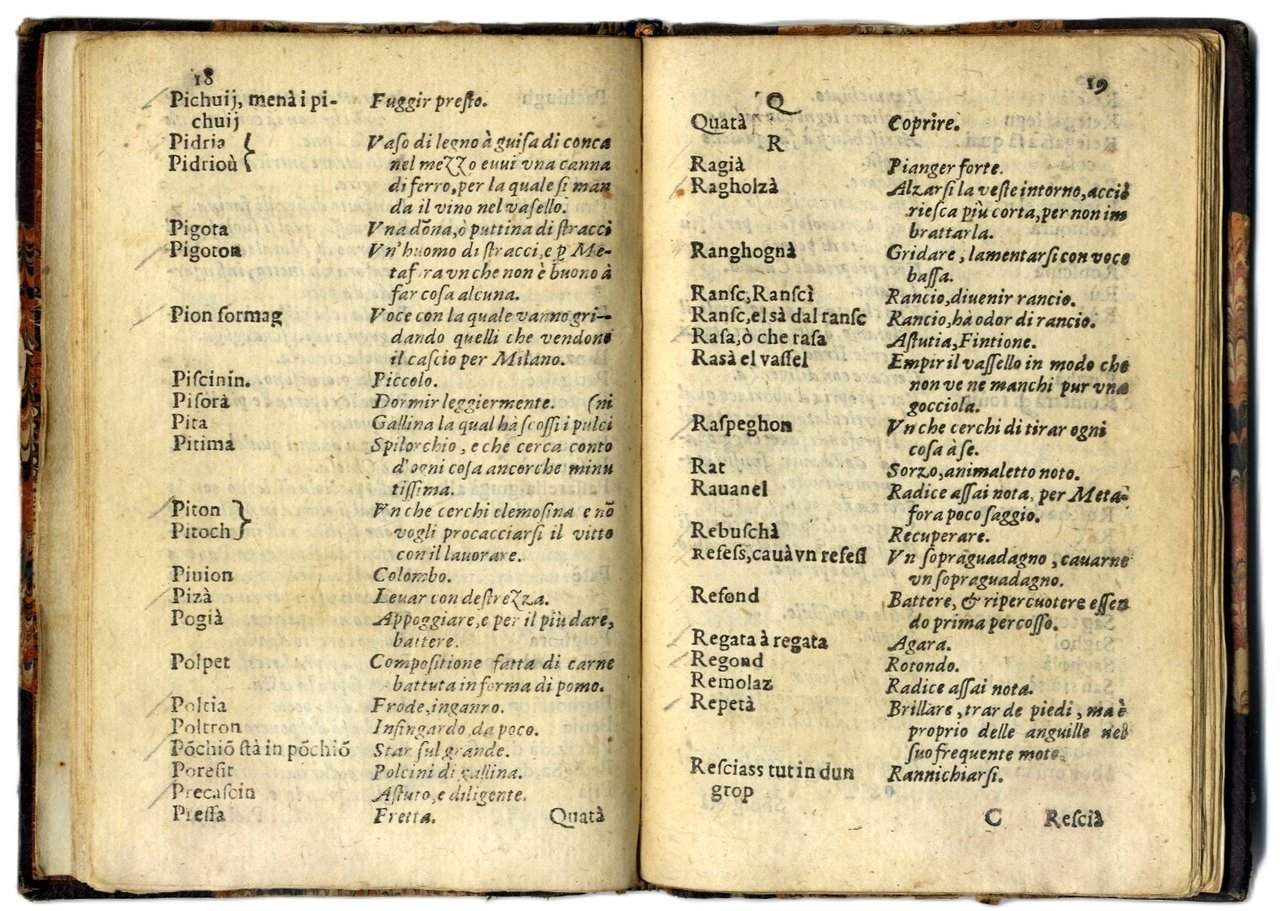 18
Pichuij, menà i pi- Fuggir preſto.
chuij
Pidria { Vaſo di legno à guiſa di conca
Pidrioù { nel mezzo euui vna canna
di ferro, per la quale ſi man
da il vino nel vaſello.
Pigota Vna dōna, ò puttina di ſtracci
Pigoton Vn'huomo di ſtracci, e ꝑ Me-
tafora vn che non è buono à
far coſa alcuna.
Pion formag Voce con la quale vanno gri-
dando quelli che vendono
il caſcio per Milano.
Piſcinin. Piccolo.
Piſorà Dormir leggiermente. (ni
Pita Gallina la qual hà ſcoſſi i pulci
Pitima Spilorchio, e che cerca conto
d'ogni coſa ancorche minu
tiſſima.
Piton } Vn che cerchi elemoſina e nō
Pitoch } vogli procacciarſi il vitto
con il lauorare.
Piuion Colombo.
Pizà Leuar con deſtrezza.
Pogià Appoggiare, e per il più dare,
battere.
Polpet Compoſitione fatta di carne
battuta in forma di pomo.
Poltia Frode, inganno.
Poltron Infingardo, da poco.
Pōchiō ſtà in pōchiō Star ſul grande.
Poreſit Polcini di gallina.
Precaſcin Aſtuto, e diligente.
Preſſa Fretta. Quatà
19
Q
Quatà Coprire.
R
Ragià Pianger forte.
Ragholzà Alzarſi la veſte intorno, acciò
rieſca più corta, per non im
brattarla.
Ranghognà Gridare, lamentarſi con voce
baſſa.
Ranſc, Ranſcì Rancio, diuenir rancio.
Ranſc, el sà dal ranſc Rancio, hà odor di rancio.
Raſa, ò che raſa Aſtutia, Fintione.
Raſà el vaſſel Empir il vaſſello in modo che
non ve ne manchi pur vna
gocciola.
Raſpeghon Vn che cerchi di tirar ogni
coſa à ſe.
Rat Sorzo, animaletto noto.
Rauanel Radice aſſai nota, per Meta-
fora poco ſaggio.
Rebuſchà Recuperare.
Refeſſ, cauà vn refeſſ Vn ſopraguadagno, cauarne
vn ſopraguadagno.
Refond Battere, & ripercuotere eſſen
do prima percoſſo.
Regata à regata Agara.
Regond Rotondo.
Remolaz Radice aſſai nota.
Repetà Brillare, trar de piedi, ma è
proprio delle anguille nel
ſuo frequente moto.
Reſciaſs tut in d un Rannichiarſi.
grop
C Reſcià